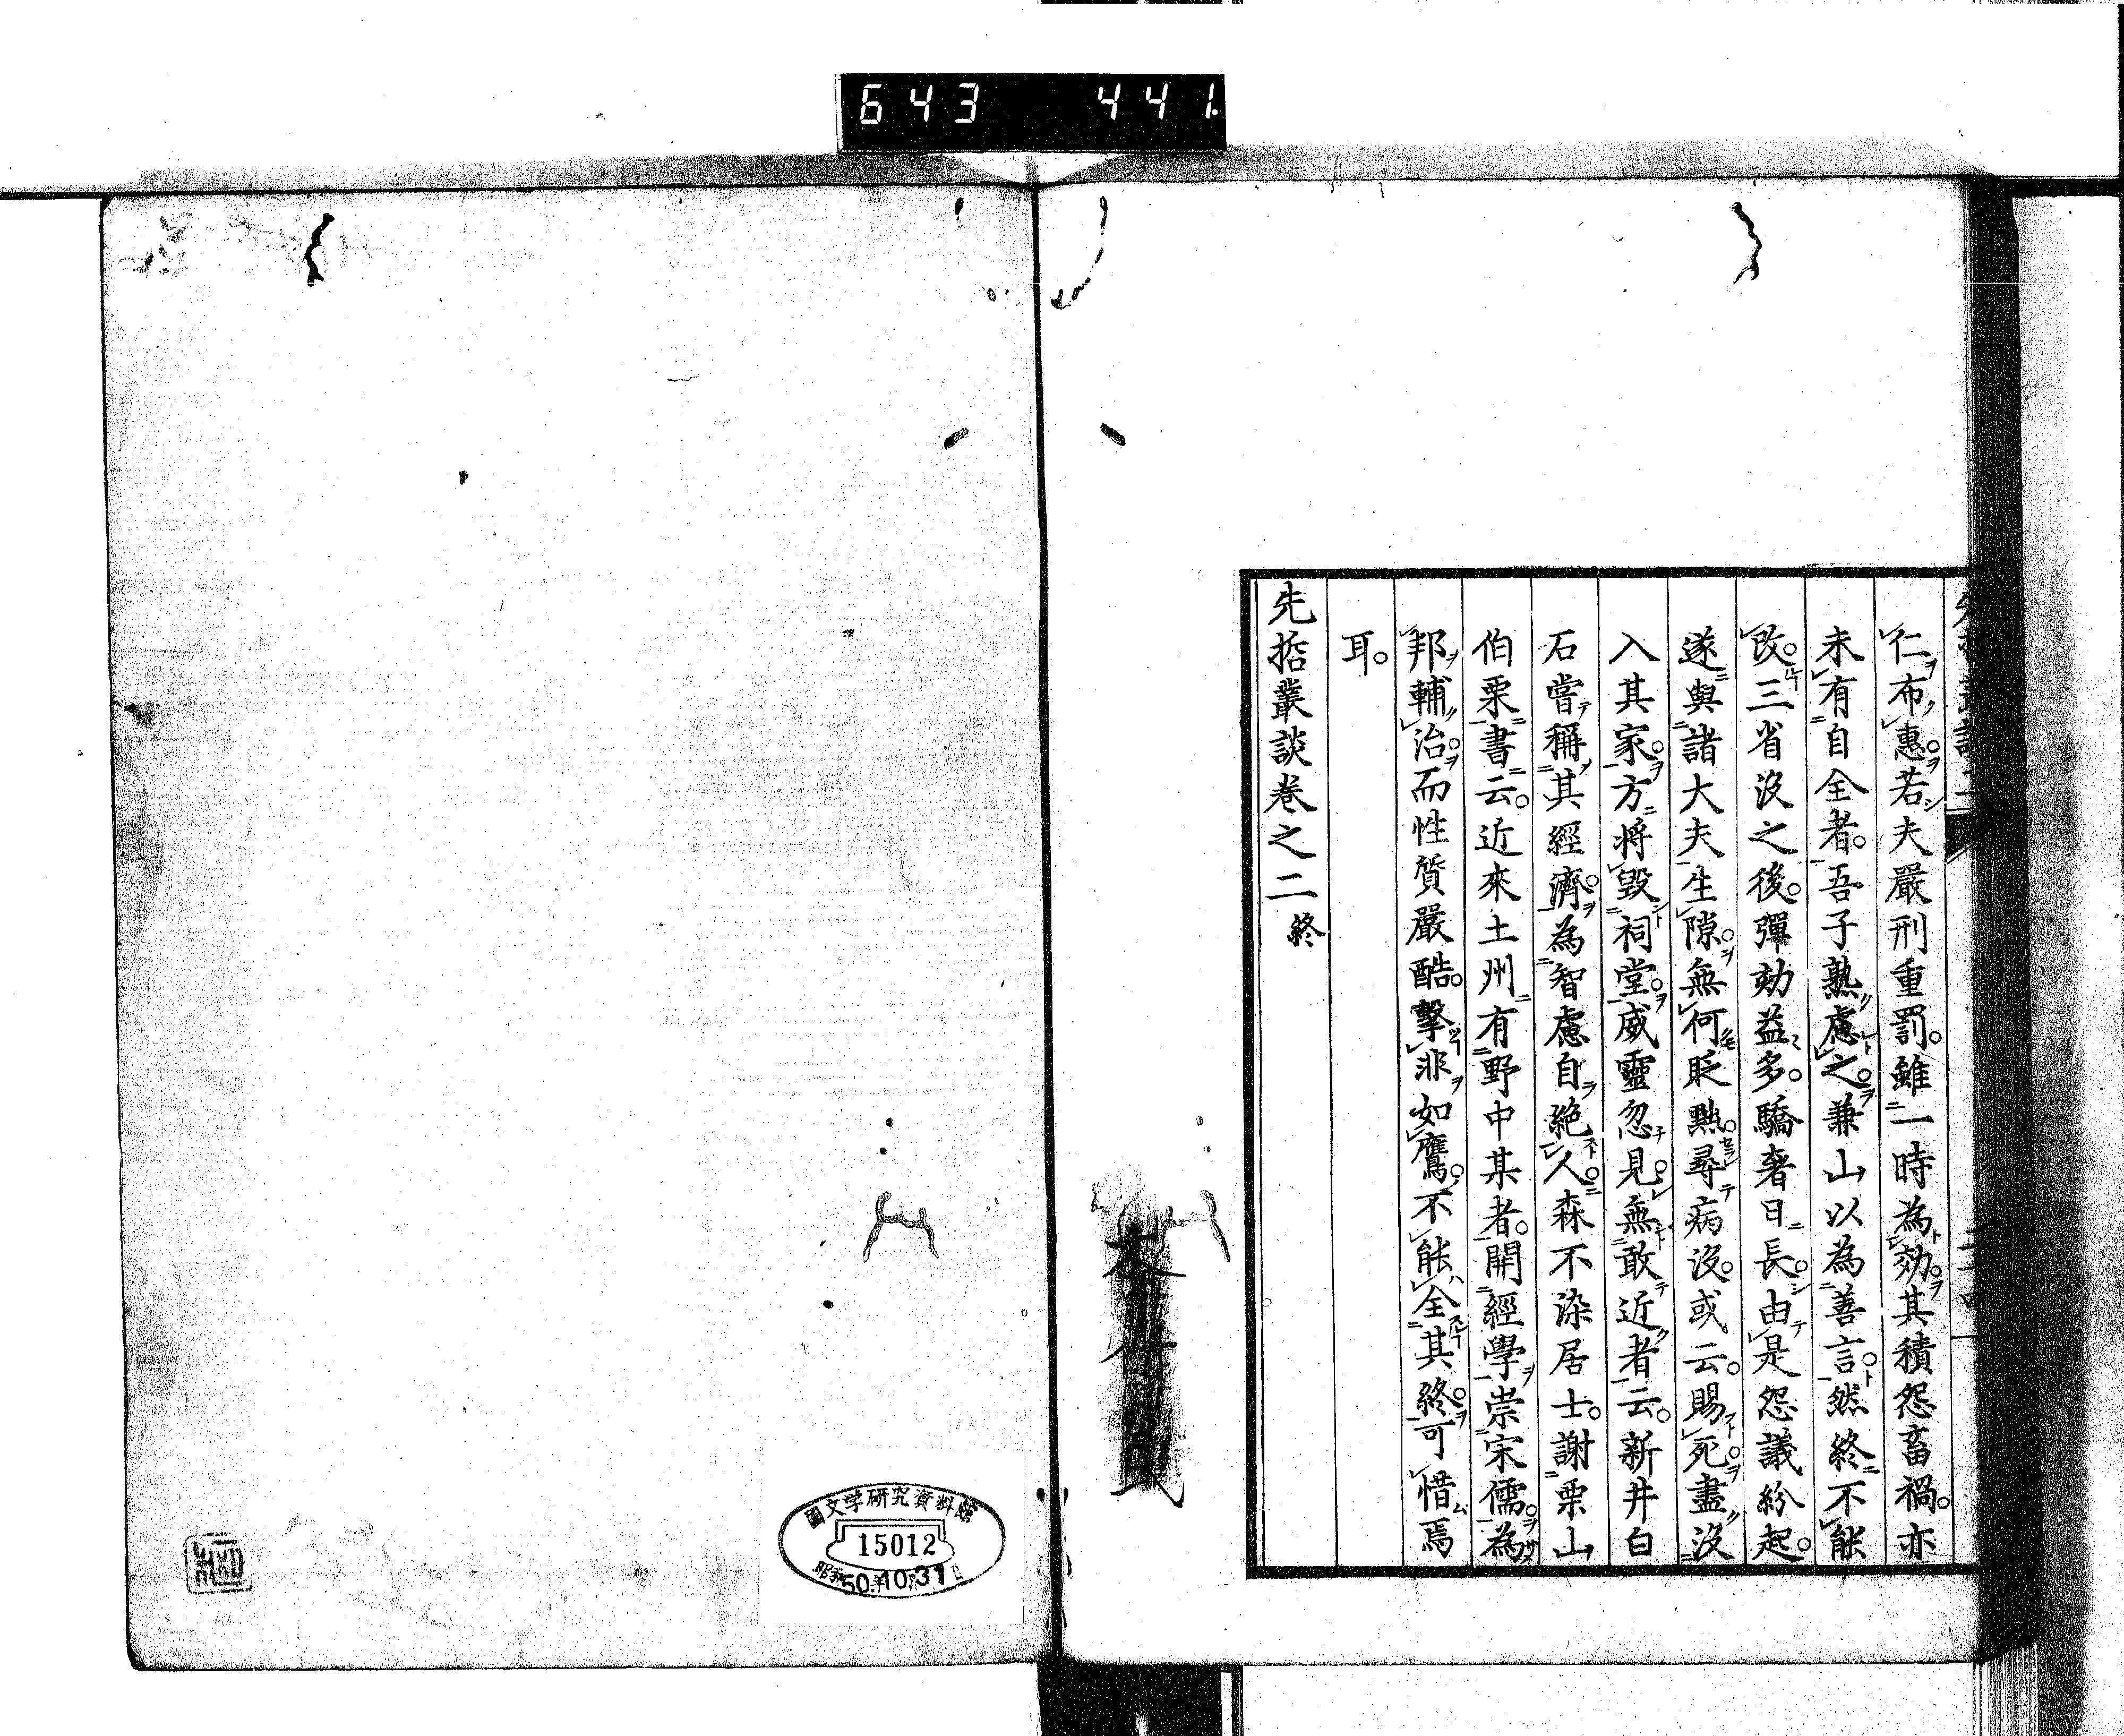 643 441.
仁布惠。若夫嚴刑重罰。雖一時為効。其積怨畜禍。亦
未有自全者。吾子熟慮之。兼山以為善言。然終不能
改。三省沒之後。彈劾益多。驕奢日長。由是怨議紛起。
遂與諸大夫生隙。無何貶黜。尋病沒。或云。賜死盡沒
入其家。方將毀祠堂。威靈忽見。無敢近者云。新井白
石嘗稱其經濟。為智慮自絶人。森不染居士。謝栗山
伯栗書云。近來土州有野中某者。開經學崇宋儒。為
邦輔治。而性質嚴酷。擊非如鷹。不能全其終。可惜焉
耳。
先哲叢談卷之二 終
國文学研究資料館
15012
昭和50.10.31